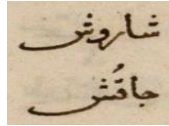 شاروش
جاقُش